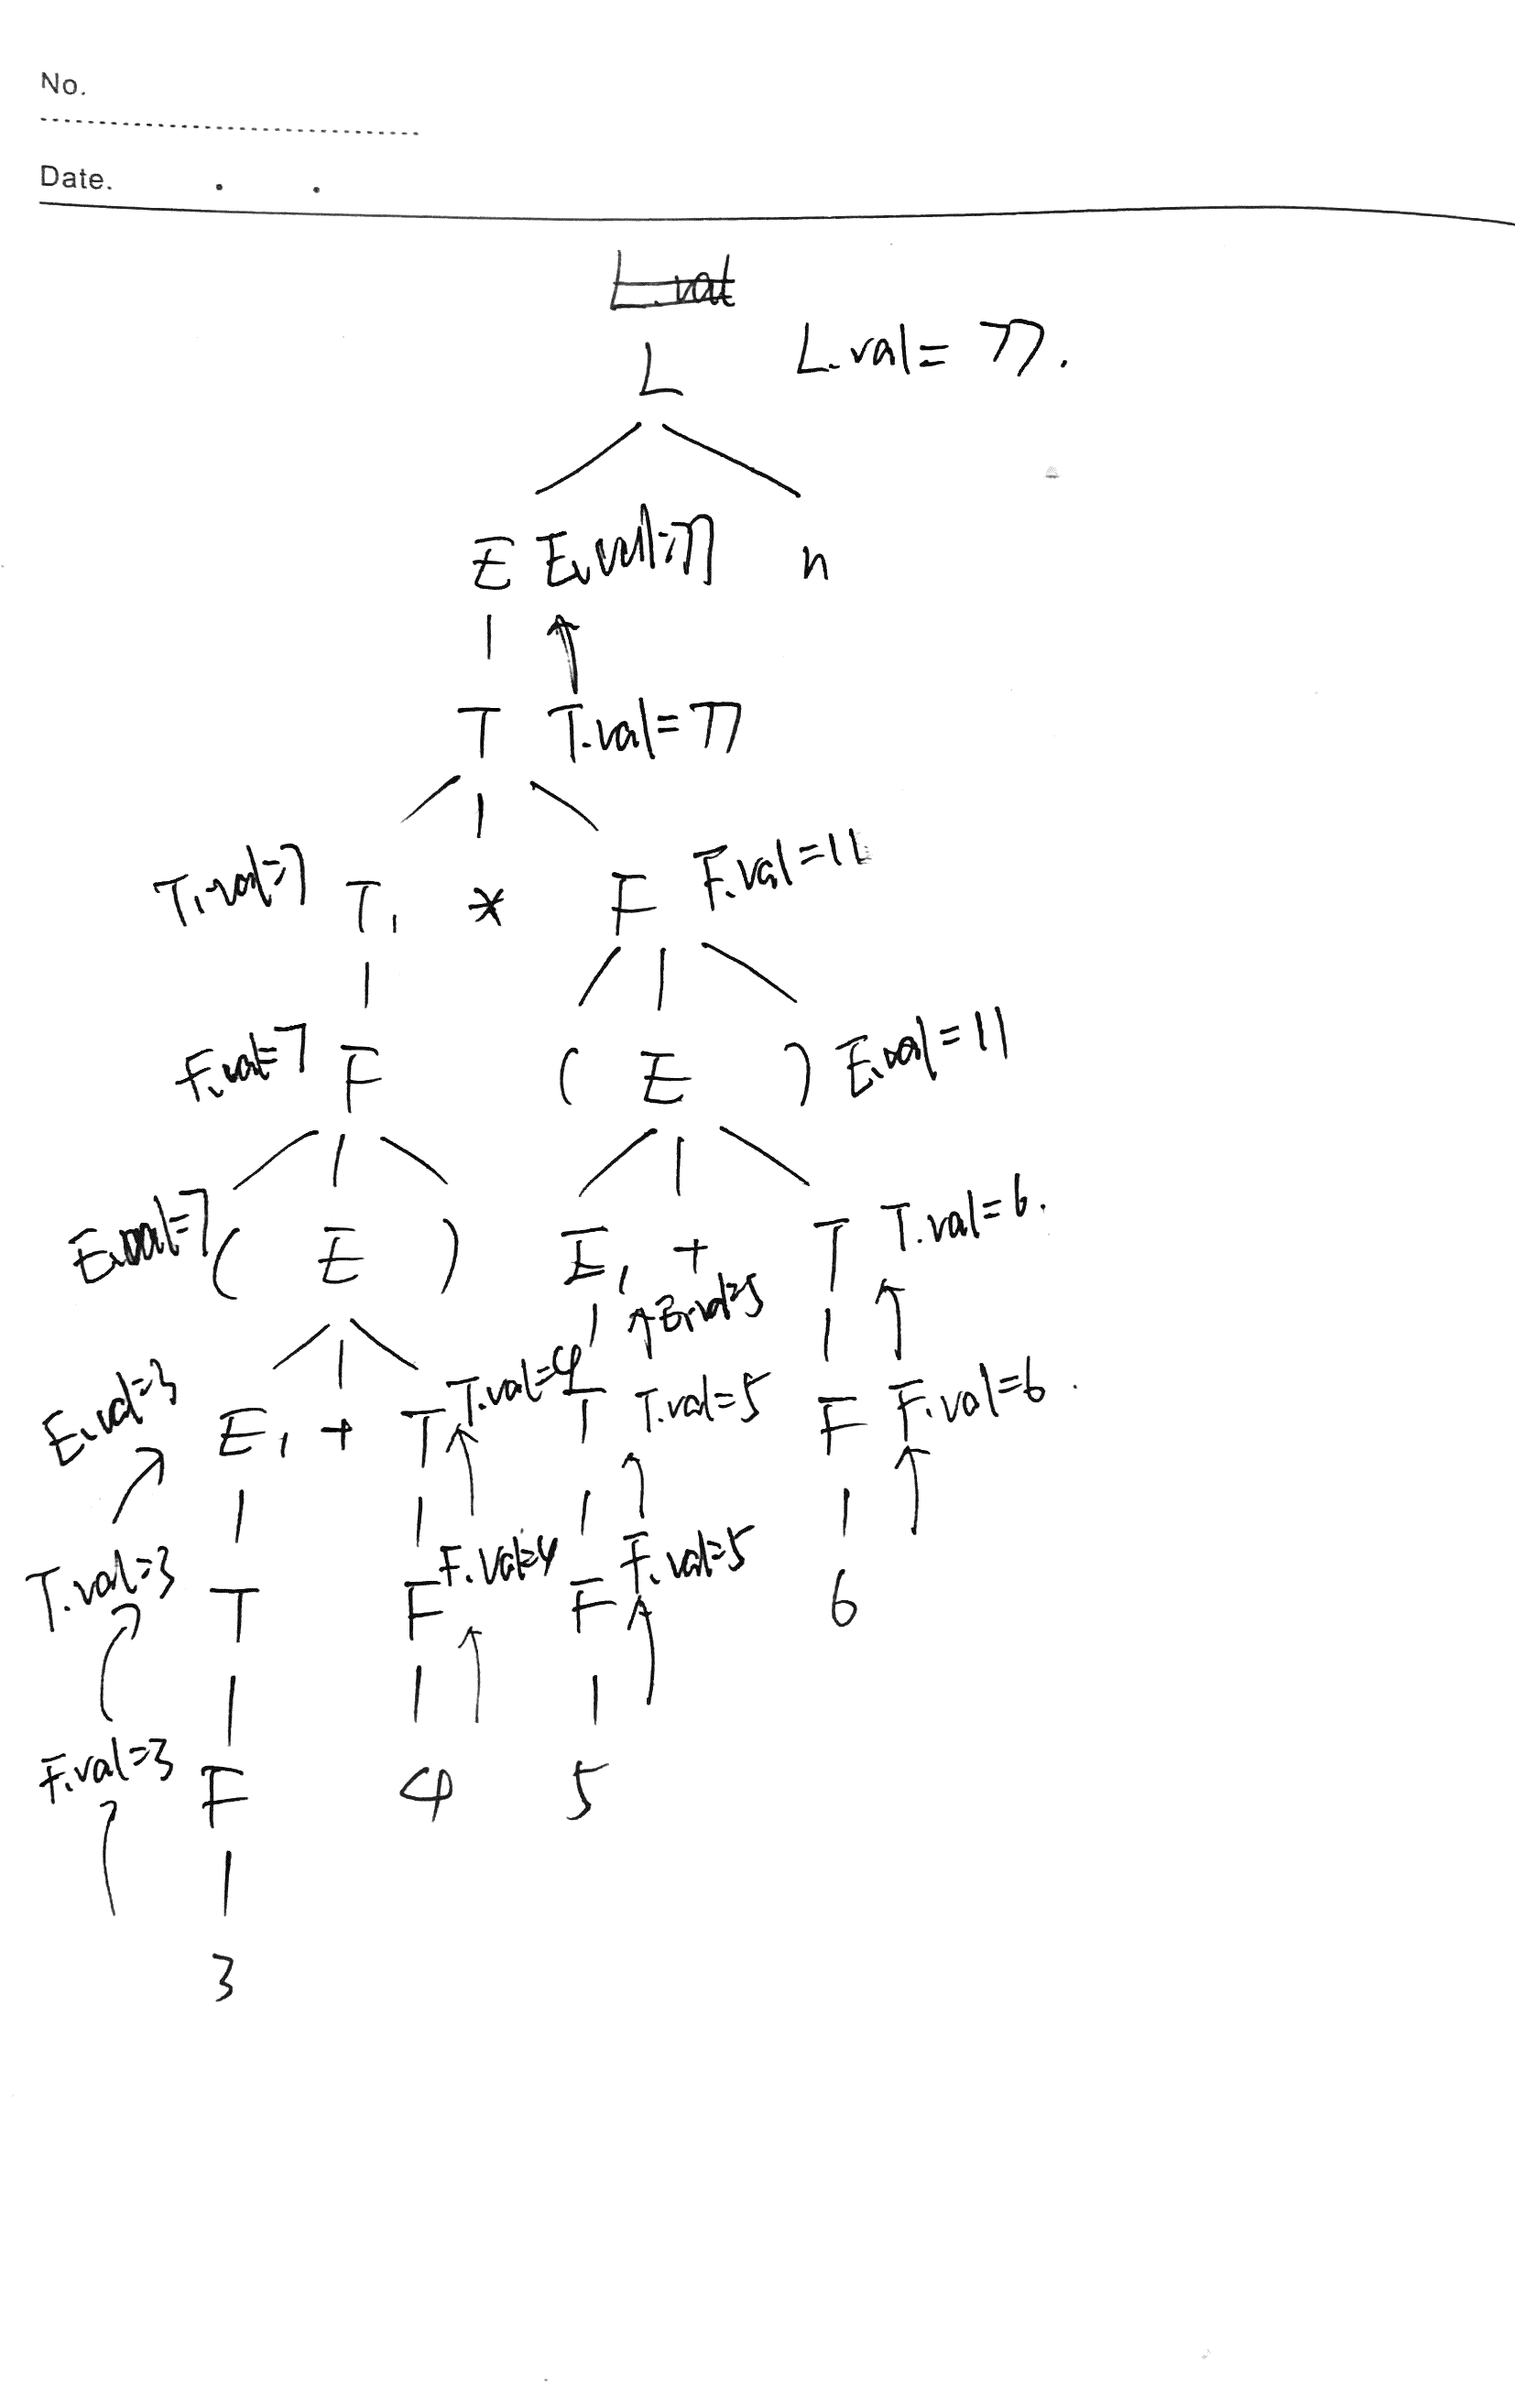 No.
Date. . .
L.val
L L.val= 77.
E E.val=77 n
T T.val=77
T₁.val=7 T₁ * F F.val=11
F.val=7 F ( E ) E.val=11
E.val=7 ( E ) E₁ + T T.val=6.
E₁.val=5
E₁.val=3 E₁ + T T.val=4 T T.val=5 F F.val=6.
T.val=3 T F F.val=4 F F.val=5 6
F.val=3 F 4 5
3